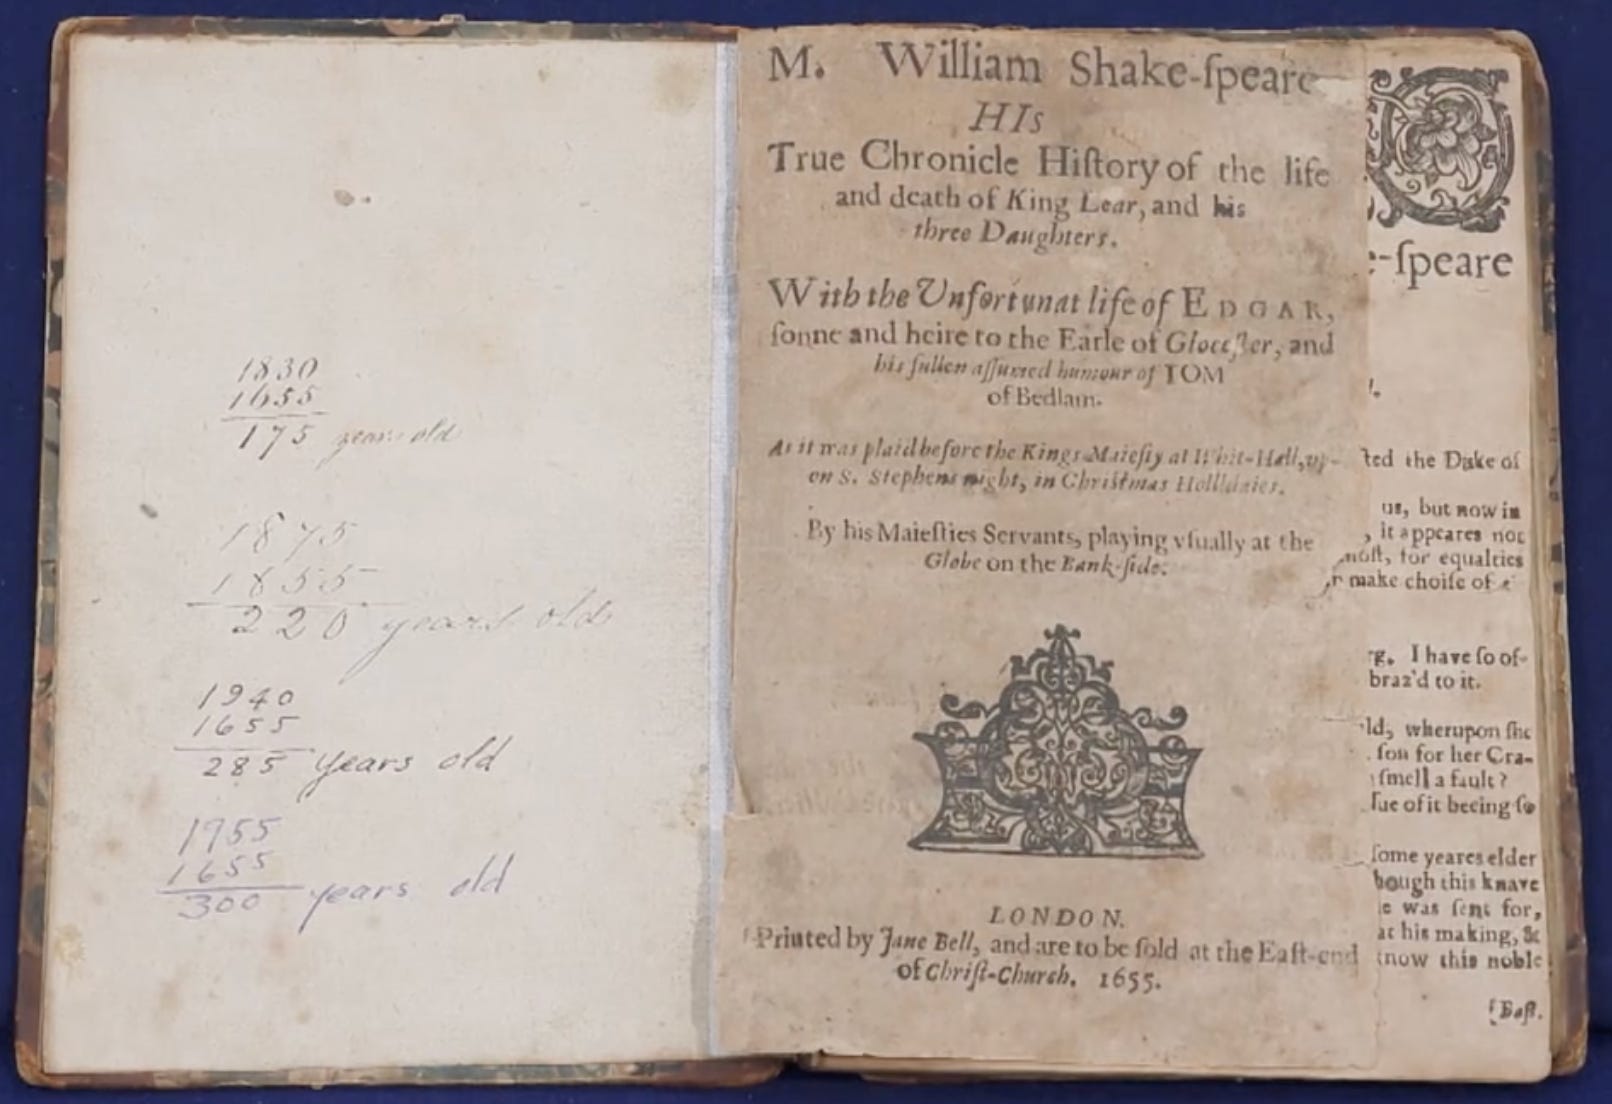 1830
1655
175 years old
1875
1655
220 years old
1940
1655
285 years old
1955
1655
300 years old
M. William Shake-ſpeare
HIs
True Chronicle Hiſtory of the life
and death of King Lear, and his
three Daughters.
With the Unfortunat life of EDGAR,
ſonne and heire to the Earle of Gloceſter, and
his ſullen aſſumed humour of TOM
of Bedlam.
As it was plaid before the Kings Maieſty at Whit-Hall, up-
on S. Stephens night, in Chriſtmas Hollidaies.
By his Maieſties Servants, playing vſually at the
Globe on the Bank-ſide.
LONDON.
Printed by Jane Bell, and are to be ſold at the Eaſt-end
of Chriſt-Church. 1655.
e-ſpeare
ted the Duke of
us, but now in
, it appeares not
moſt, for equalties
r make choiſe of
rg. I have ſo of-
braz'd to it.
ld, wherupon ſhe
ſon for her Cra-
ſmell a fault?
ſue of it beeing ſo
ſome yeares elder
hough this knave
e was ſent for,
at his making, &
know this noble
Baſt.